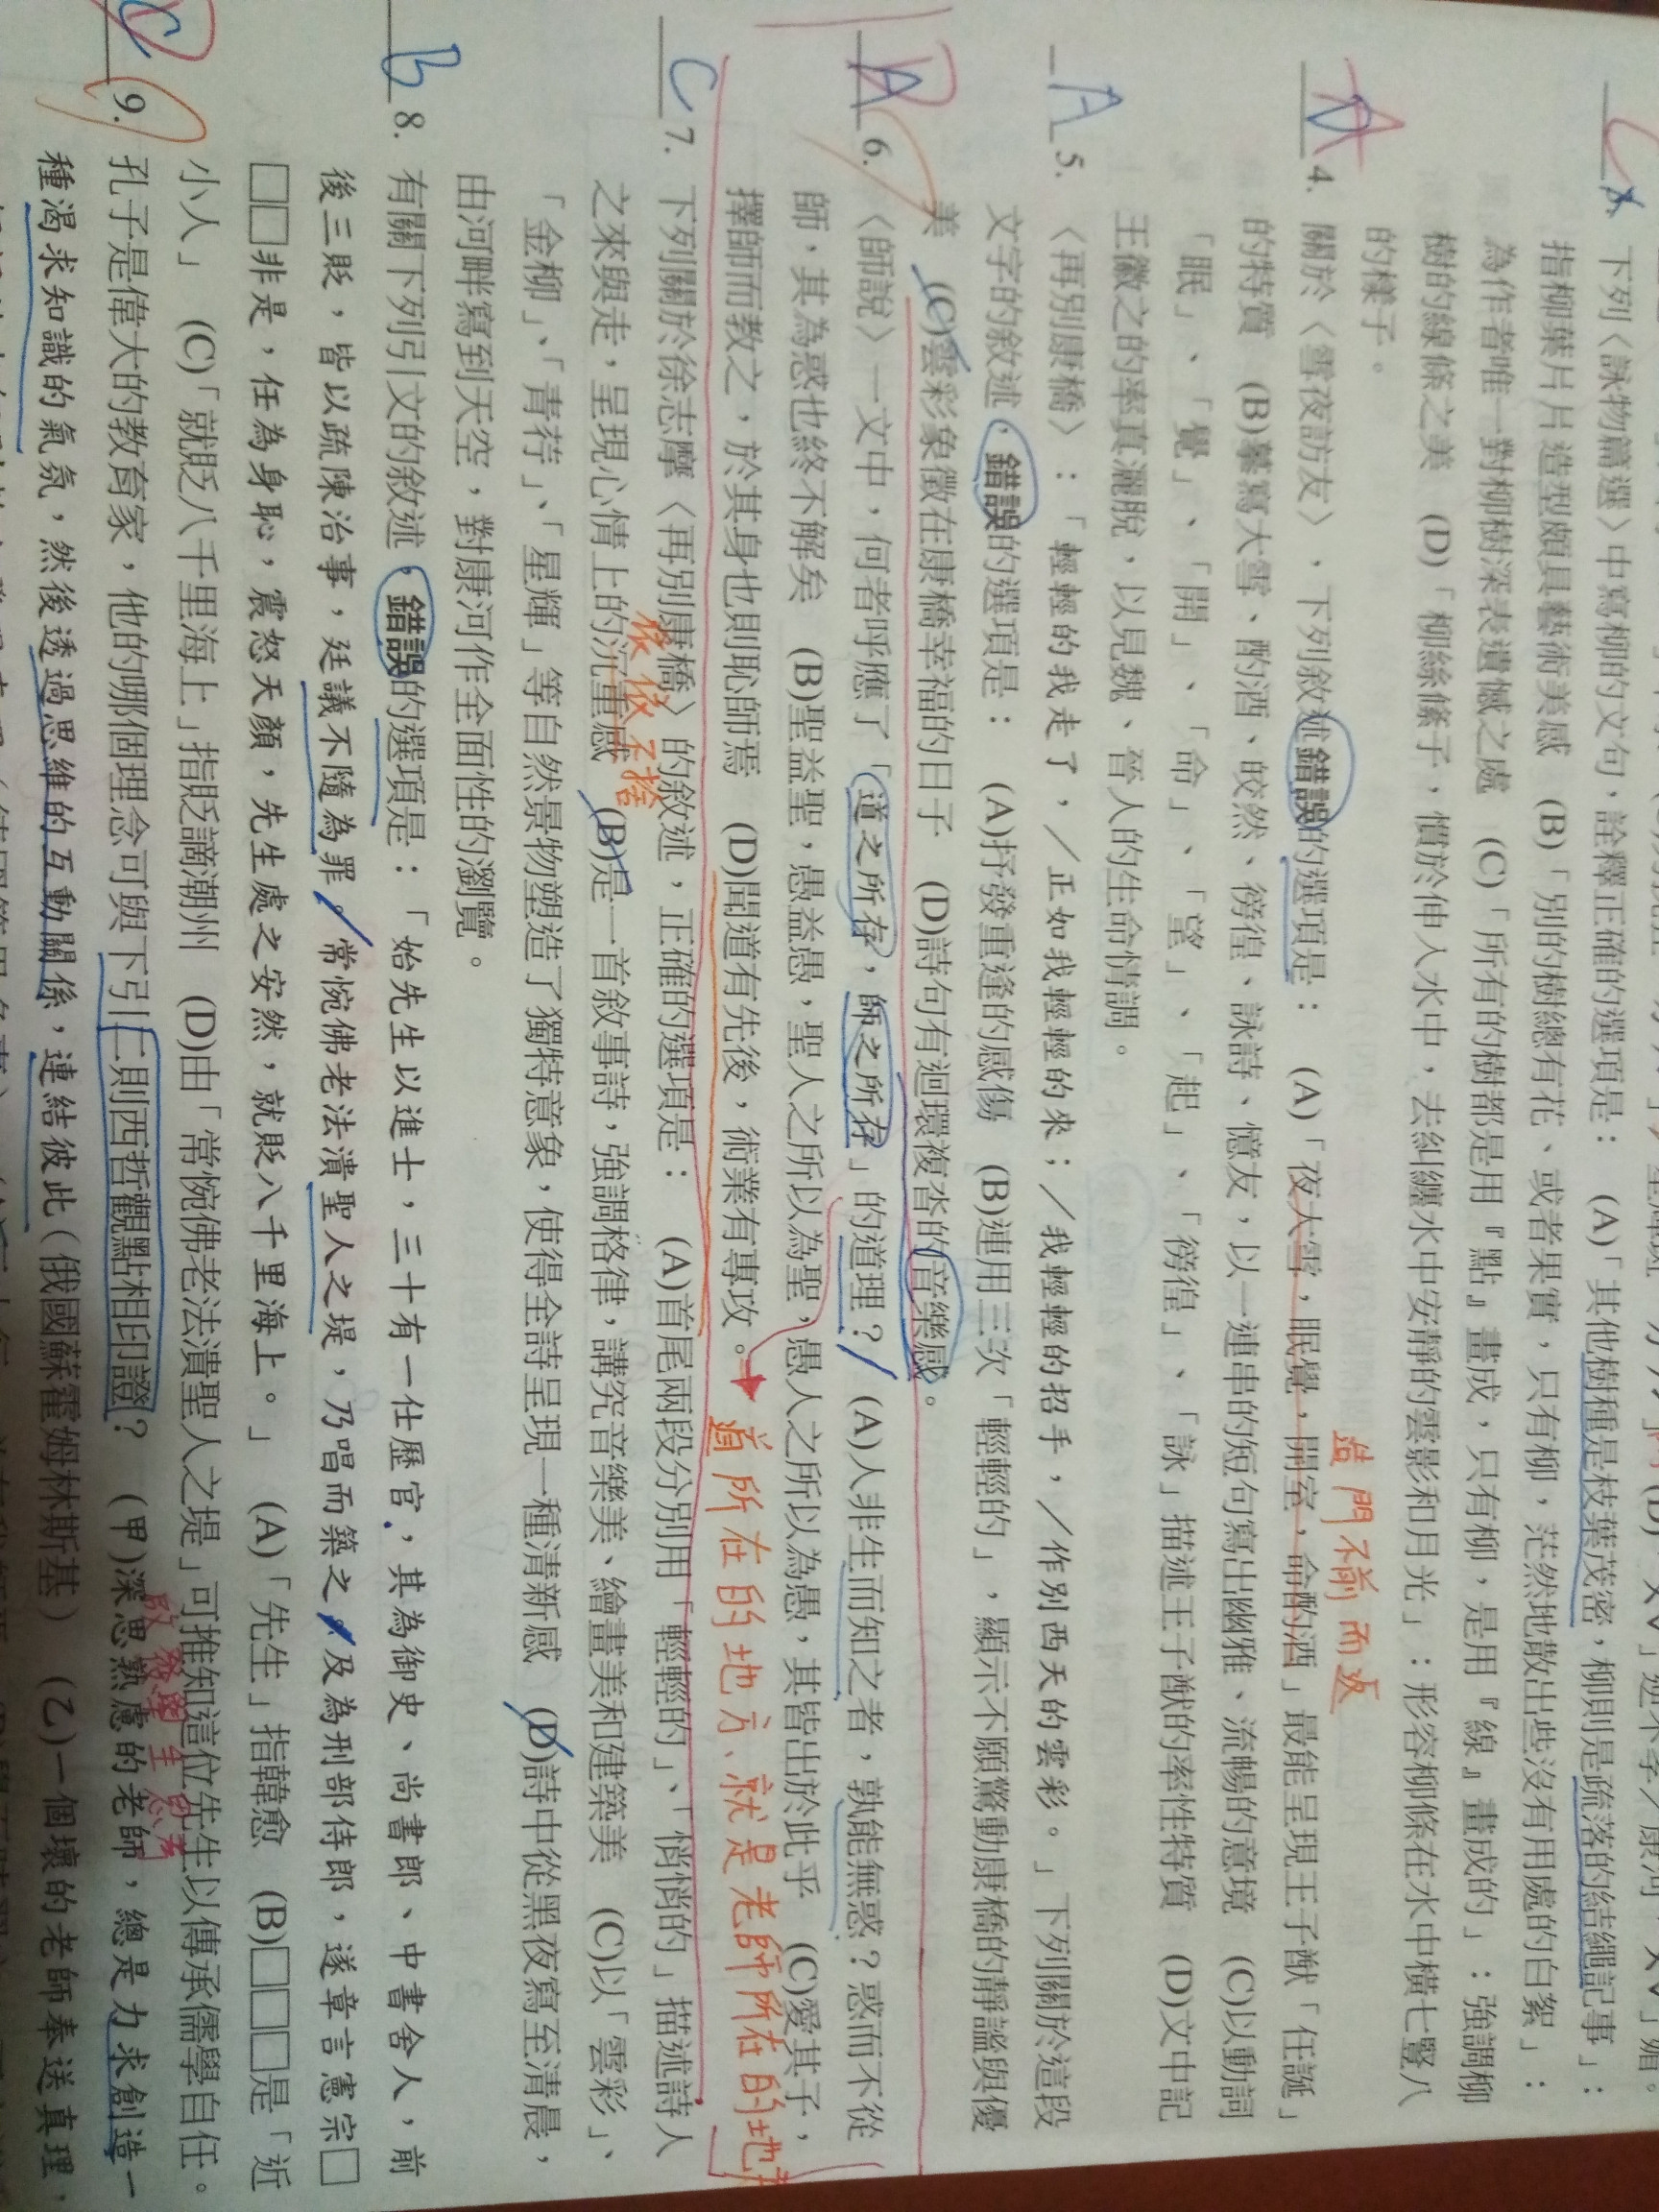 C 3. 下列〈詠物篇選〉中寫柳的文句，詮釋正確的選項是： (A)「其他樹種是枝葉茂密，柳則是疏落的結繩記事」：
指柳葉片片造型頗具藝術美感 (B)「別的樹總有花、或者果實，只有柳，茫然地散出些沒有用處的白絮」：
為作者唯一對柳樹深表遺憾之處 (C)「所有的樹都是用『點』畫成，只有柳，是用『線』畫成的」：強調柳
樹的線條之美 (D)「柳絲絛子，慣於伸入水中，去糾纏水中安靜的雲影和月光」：形容柳條在水中橫七豎八
的樣子。
造門不前而返
A 4. 關於〈雪夜訪友〉，下列敘述錯誤的選項是： (A)「夜大雪，眠覺，開室，命酌酒」最能呈現王子猷「任誕」
的特質 (B)摹寫大雪、酌酒、皎然、徬徨、詠詩、憶友，以一連串的短句寫出幽雅、流暢的意境 (C)以動詞
「眠」、「覺」、「開」、「命」、「望」、「起」、「徬徨」、「詠」描述王子猷的率性特質 (D)文中記
王徽之的率真灑脫，以見魏、晉人的生命情調。
A 5. 〈再別康橋〉：「輕輕的我走了，／正如我輕輕的來；／我輕輕的招手，／作別西天的雲彩。」下列關於這段
文字的敘述，錯誤的選項是： (A)抒發重逢的感傷 (B)連用三次「輕輕的」，顯示不願驚動康橋的靜謐與優
美 (C)雲彩象徵在康橋幸福的日子 (D)詩句有迴環複沓的音樂感。
A 6. 〈師說〉一文中，何者呼應了「道之所存，師之所存」的道理？ (A)人非生而知之者，孰能無惑？惑而不從
師，其為惑也終不解矣 (B)聖益聖，愚益愚，聖人之所以為聖，愚人之所以為愚，其皆出於此乎 (C)愛其子，
擇師而教之，於其身也則恥師焉 (D)聞道有先後，術業有專攻。
道所在的地方、就是老師所在的地
C 7. 下列關於徐志摩〈再別康橋〉的敘述，正確的選項是： (A)首尾兩段分別用「輕輕的」、「悄悄的」描述詩人
依依不捨
之來與走，呈現心情上的沉重感 (B)是一首敘事詩，強調格律，講究音樂美、繪畫美和建築美 (C)以「雲彩」、
「金柳」、「青荇」、「星輝」等自然景物塑造了獨特意象，使得全詩呈現一種清新感 (D)詩中從黑夜寫至清晨，
由河畔寫到天空，對康河作全面性的瀏覽。
B 8. 有關下列引文的敘述，錯誤的選項是：「始先生以進士，三十有一仕歷官，其為御史、尚書郎、中書舍人，前
後三貶，皆以疏陳治事，廷議不隨為罪。常惋佛老法潰聖人之堤，乃唱而築之。及為刑部侍郎，遂章言憲宗□
□□非是，任為身恥，震怒天顏，先生處之安然，就貶八千里海上。」 (A)「先生」指韓愈 (B)□□□是「近
小人」 (C)「就貶八千里海上」指貶謫潮州 (D)由「常惋佛老法潰聖人之堤」可推知這位先生以傳承儒學自任。
C 9. 孔子是偉大的教育家，他的哪個理念可與下引二則西哲觀點相印證？ (甲)深思熟慮的老師，總是力求創造一
種渴求知識的氣氛，然後透過思維的互動關係，連結彼此（俄國蘇霍姆林斯基） (乙)一個壞的老師奉送真理，